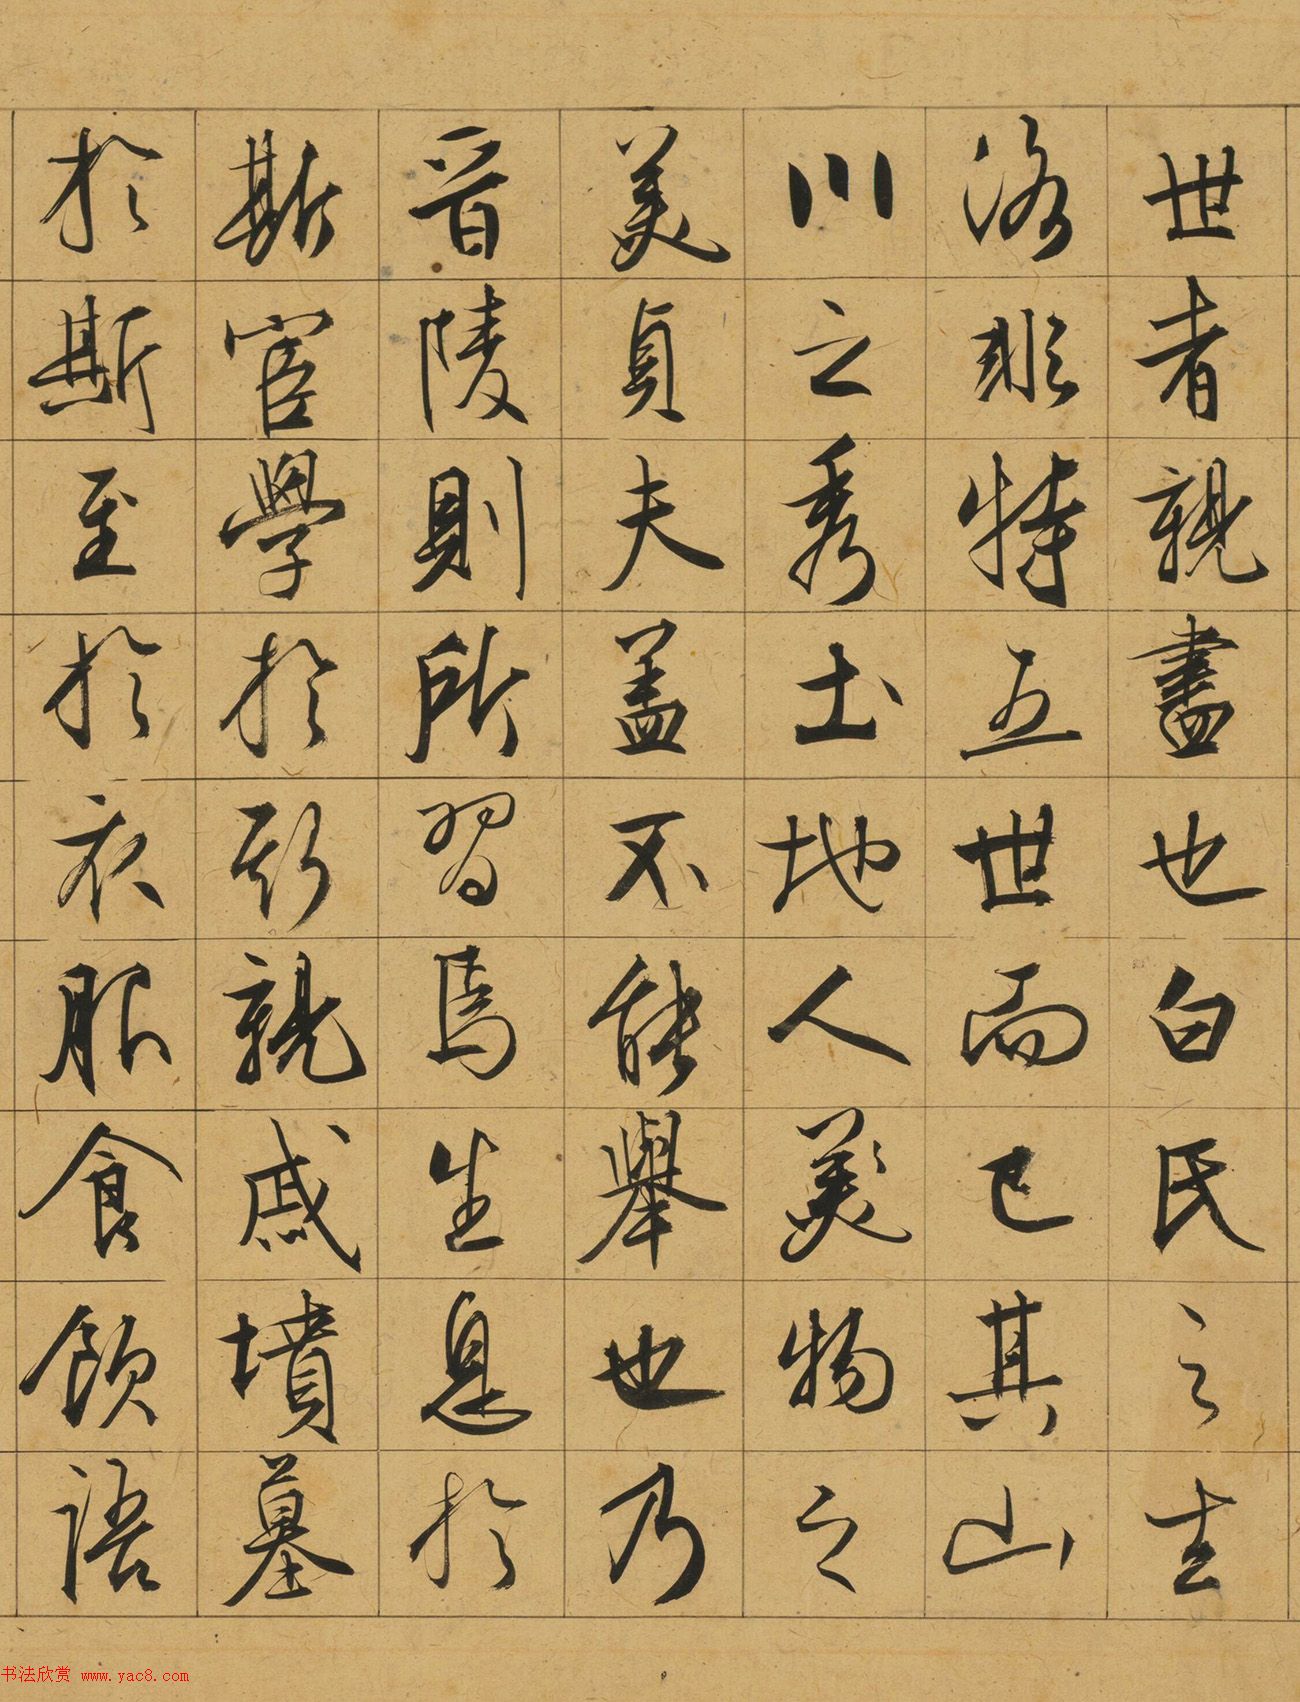 世者親盡也白氏之去
洛邪特五世而已其山
川之秀土地人美物之
美貞夫盖不能舉也乃
晉陵則所習焉生息於
斯宦學於斯親戚墳墓
於斯至於衣服食飲語
书法欣赏 www.yac8.com